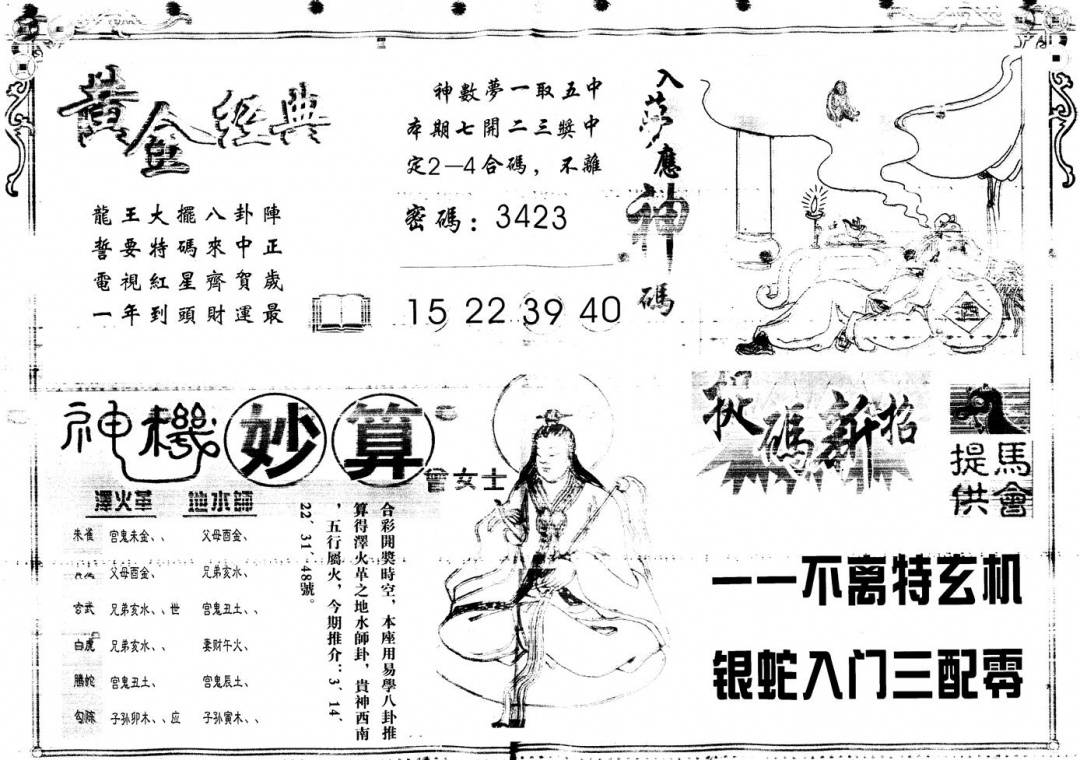 黄金經典
龍王大擺八卦陣
誓要特碼來中正
電視紅星齊賀歲
一年到頭財運最
神數夢一取五中
本期七開二三獎中
定2—4合碼，不離
密碼：3423
15 22 39 40
入夢應神碼
酒
神機妙算
曾女士
澤火革 地水師
朱雀 官鬼未金、、 父母酉金、
父母酉金、 兄弟亥水、、
玄武 兄弟亥水、、世 官鬼丑土、、
白虎 兄弟亥水、、 妻财午火、
騰蛇 官鬼丑土、 官鬼辰土、
勾陈 子孙卯木、、应 子孙寅木、、
合彩開獎時空，本座用易學八卦推
算得澤火革之地水師卦，貴神西南
，五行屬火，今期推介：3、14、
22、31、48號。
捉碼新招
馬會
提供
一一不离特玄机
银蛇入门三配零